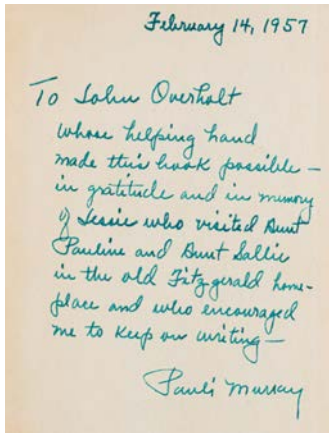 February 14, 1957
To John Overholt
whose helping hand
made this book possible —
in gratitude and in memory
of Jessie who visited Aunt
Pauline and Aunt Sallie
in the old Fitzgerald home-
place and who encouraged
me to keep on writing —
Pauli Murray